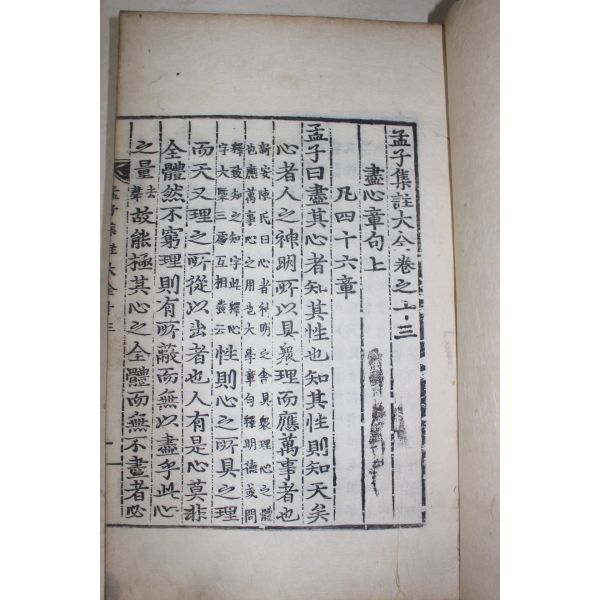 孟子集註大全卷之十三
盡心章句上
凡四十六章
孟子曰盡其心者知其性也知其性則知天矣
心者人之神明所以具衆理而應萬事者也
新安陳氏曰心者神明之舍具衆理心之體
也應萬事心之用也大學章句釋明德或問
釋致知之知字與此釋心
字大槩三處互相發云
性則心之所具之理
而天又理之所從以出者也人有是心莫非
全體然不窮理則有所蔽而無以盡乎此心
之量去聲故能極其心之全體而無不盡者必
孟子集註大全十三